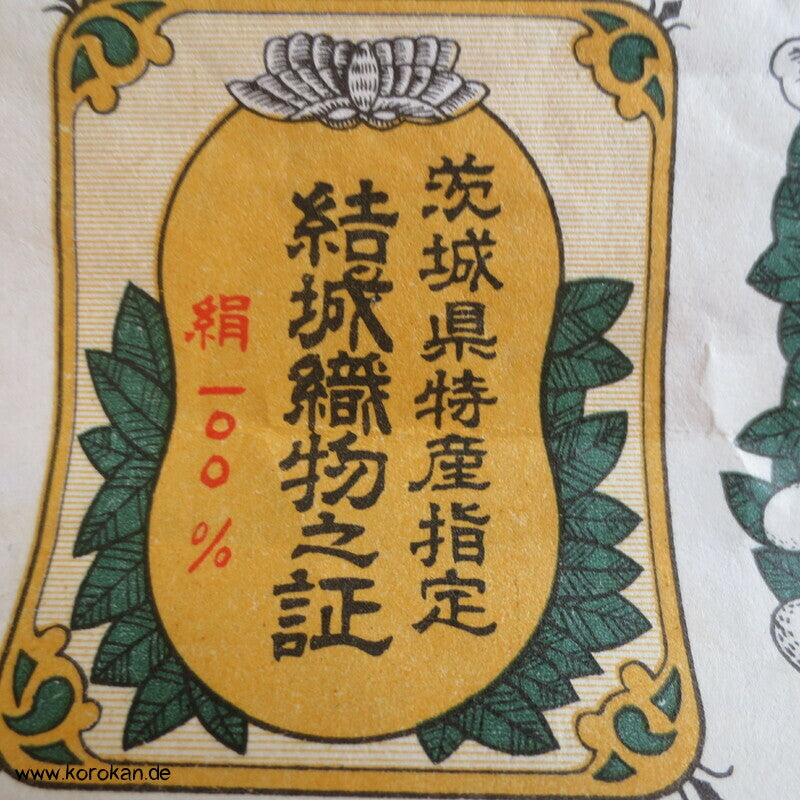 茨城県特産指定
結城織物之証
絹一〇〇%
www.korokan.de